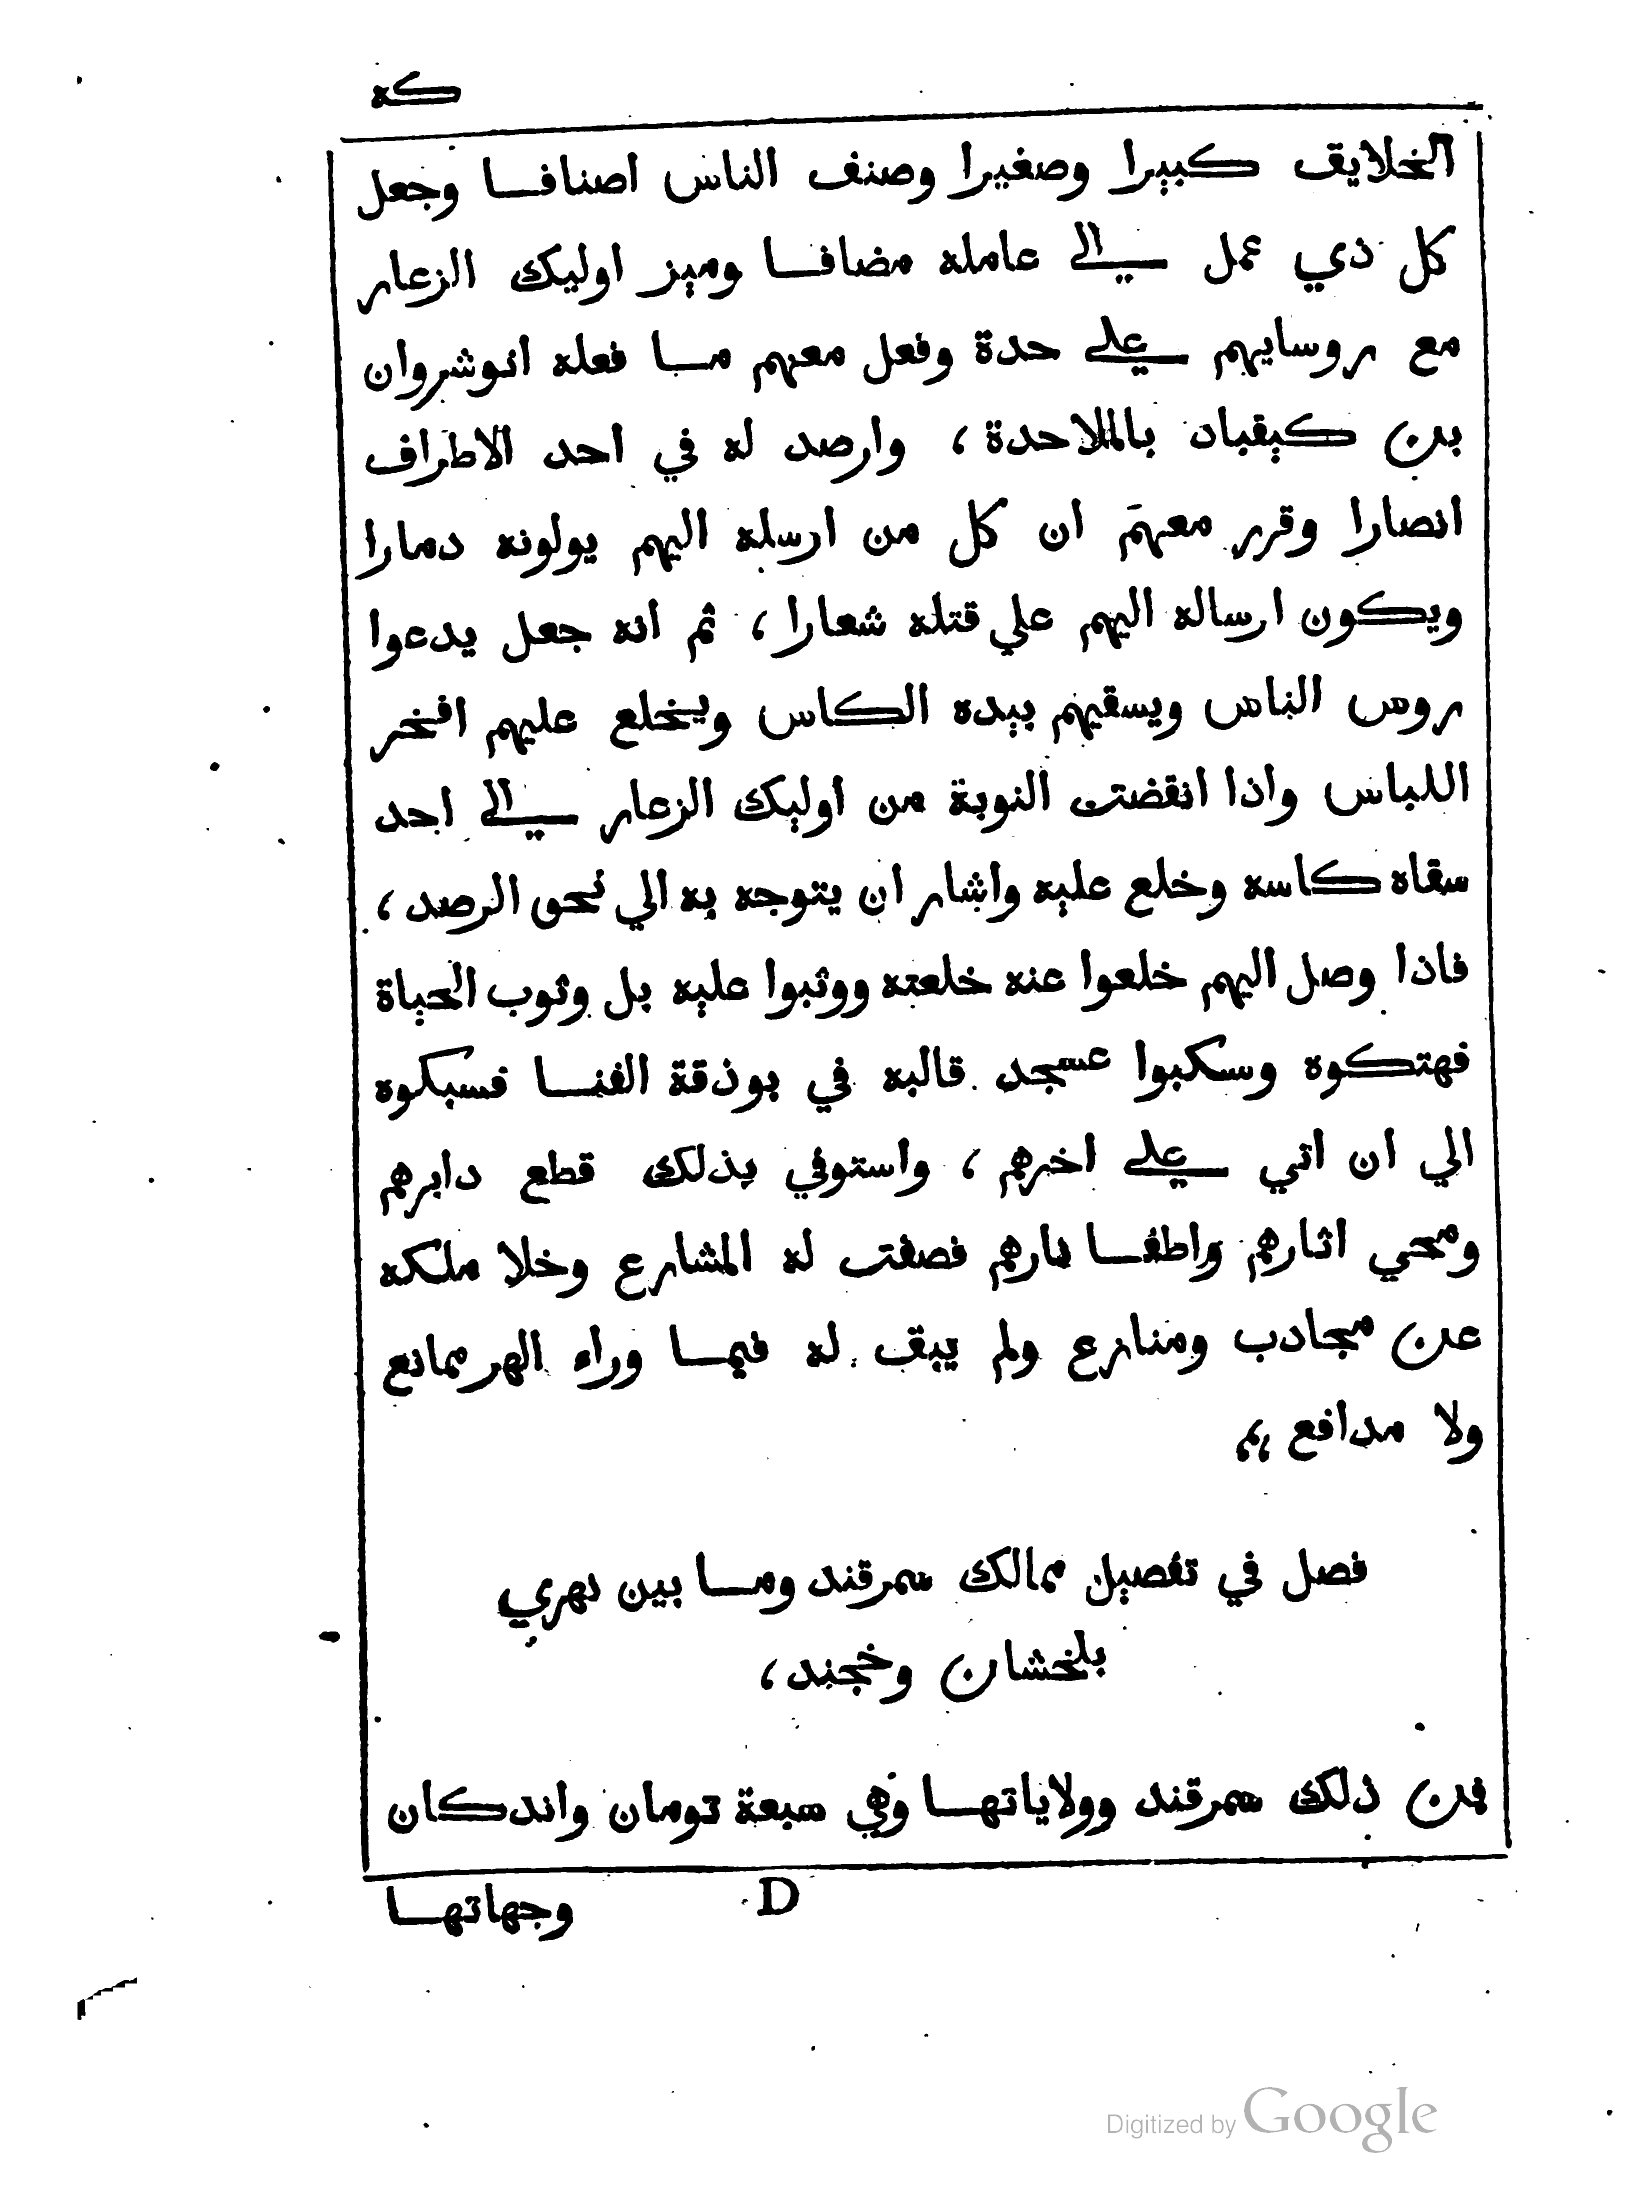 كه
الخلايق كبيرا وصغيرا وصنف الناس اصنافا وجعل
كل ذي عمل الي عامله مضافا وميز اوليك الزعار
مع روسايهم علي حدة وفعل معهم ما فعله انوشروان
بن كيقباد بالملاحدة ، وارصد له في احد الاطراف
انصارا وقرر معهم ان كل من ارسله اليهم يولونه دمارا
ويكون ارساله اليهم علي قتله شعارا ، ثم انه جعل يدعوا
روس الناس ويسقيهم بيده الكاس ويخلع عليهم افخر
اللباس واذا انقضت النوبة من اوليك الزعار الي احد
سقاه كاسه وخلع عليه واشار ان يتوجه به الي نحو الرصد ،
فاذا وصل اليهم خلعوا عنه خلعته ووثبوا عليه بل وثوب الحياة
فهتكوه وسكبوا عسجد قالبه في بوذقة الفنا فسبكوه
الي ان اتي علي اخرهم ، واستوفي بذلك قطع دابرهم
ومحي اثارهم واطفا نارهم فصفت له المشارع وخلا ملكه
عن مجادب ومنازع ولم يبق له فيما وراء الهر ممانع
ولا مدافع ،،
فصل في تفصيل ممالك سمرقند وما بين نهري
بلخشان وخجند ،
فمن ذلك سمرقند وولاياتها وهي سبعة تومان واندكان
D
وجهاتها
Digitized by Google